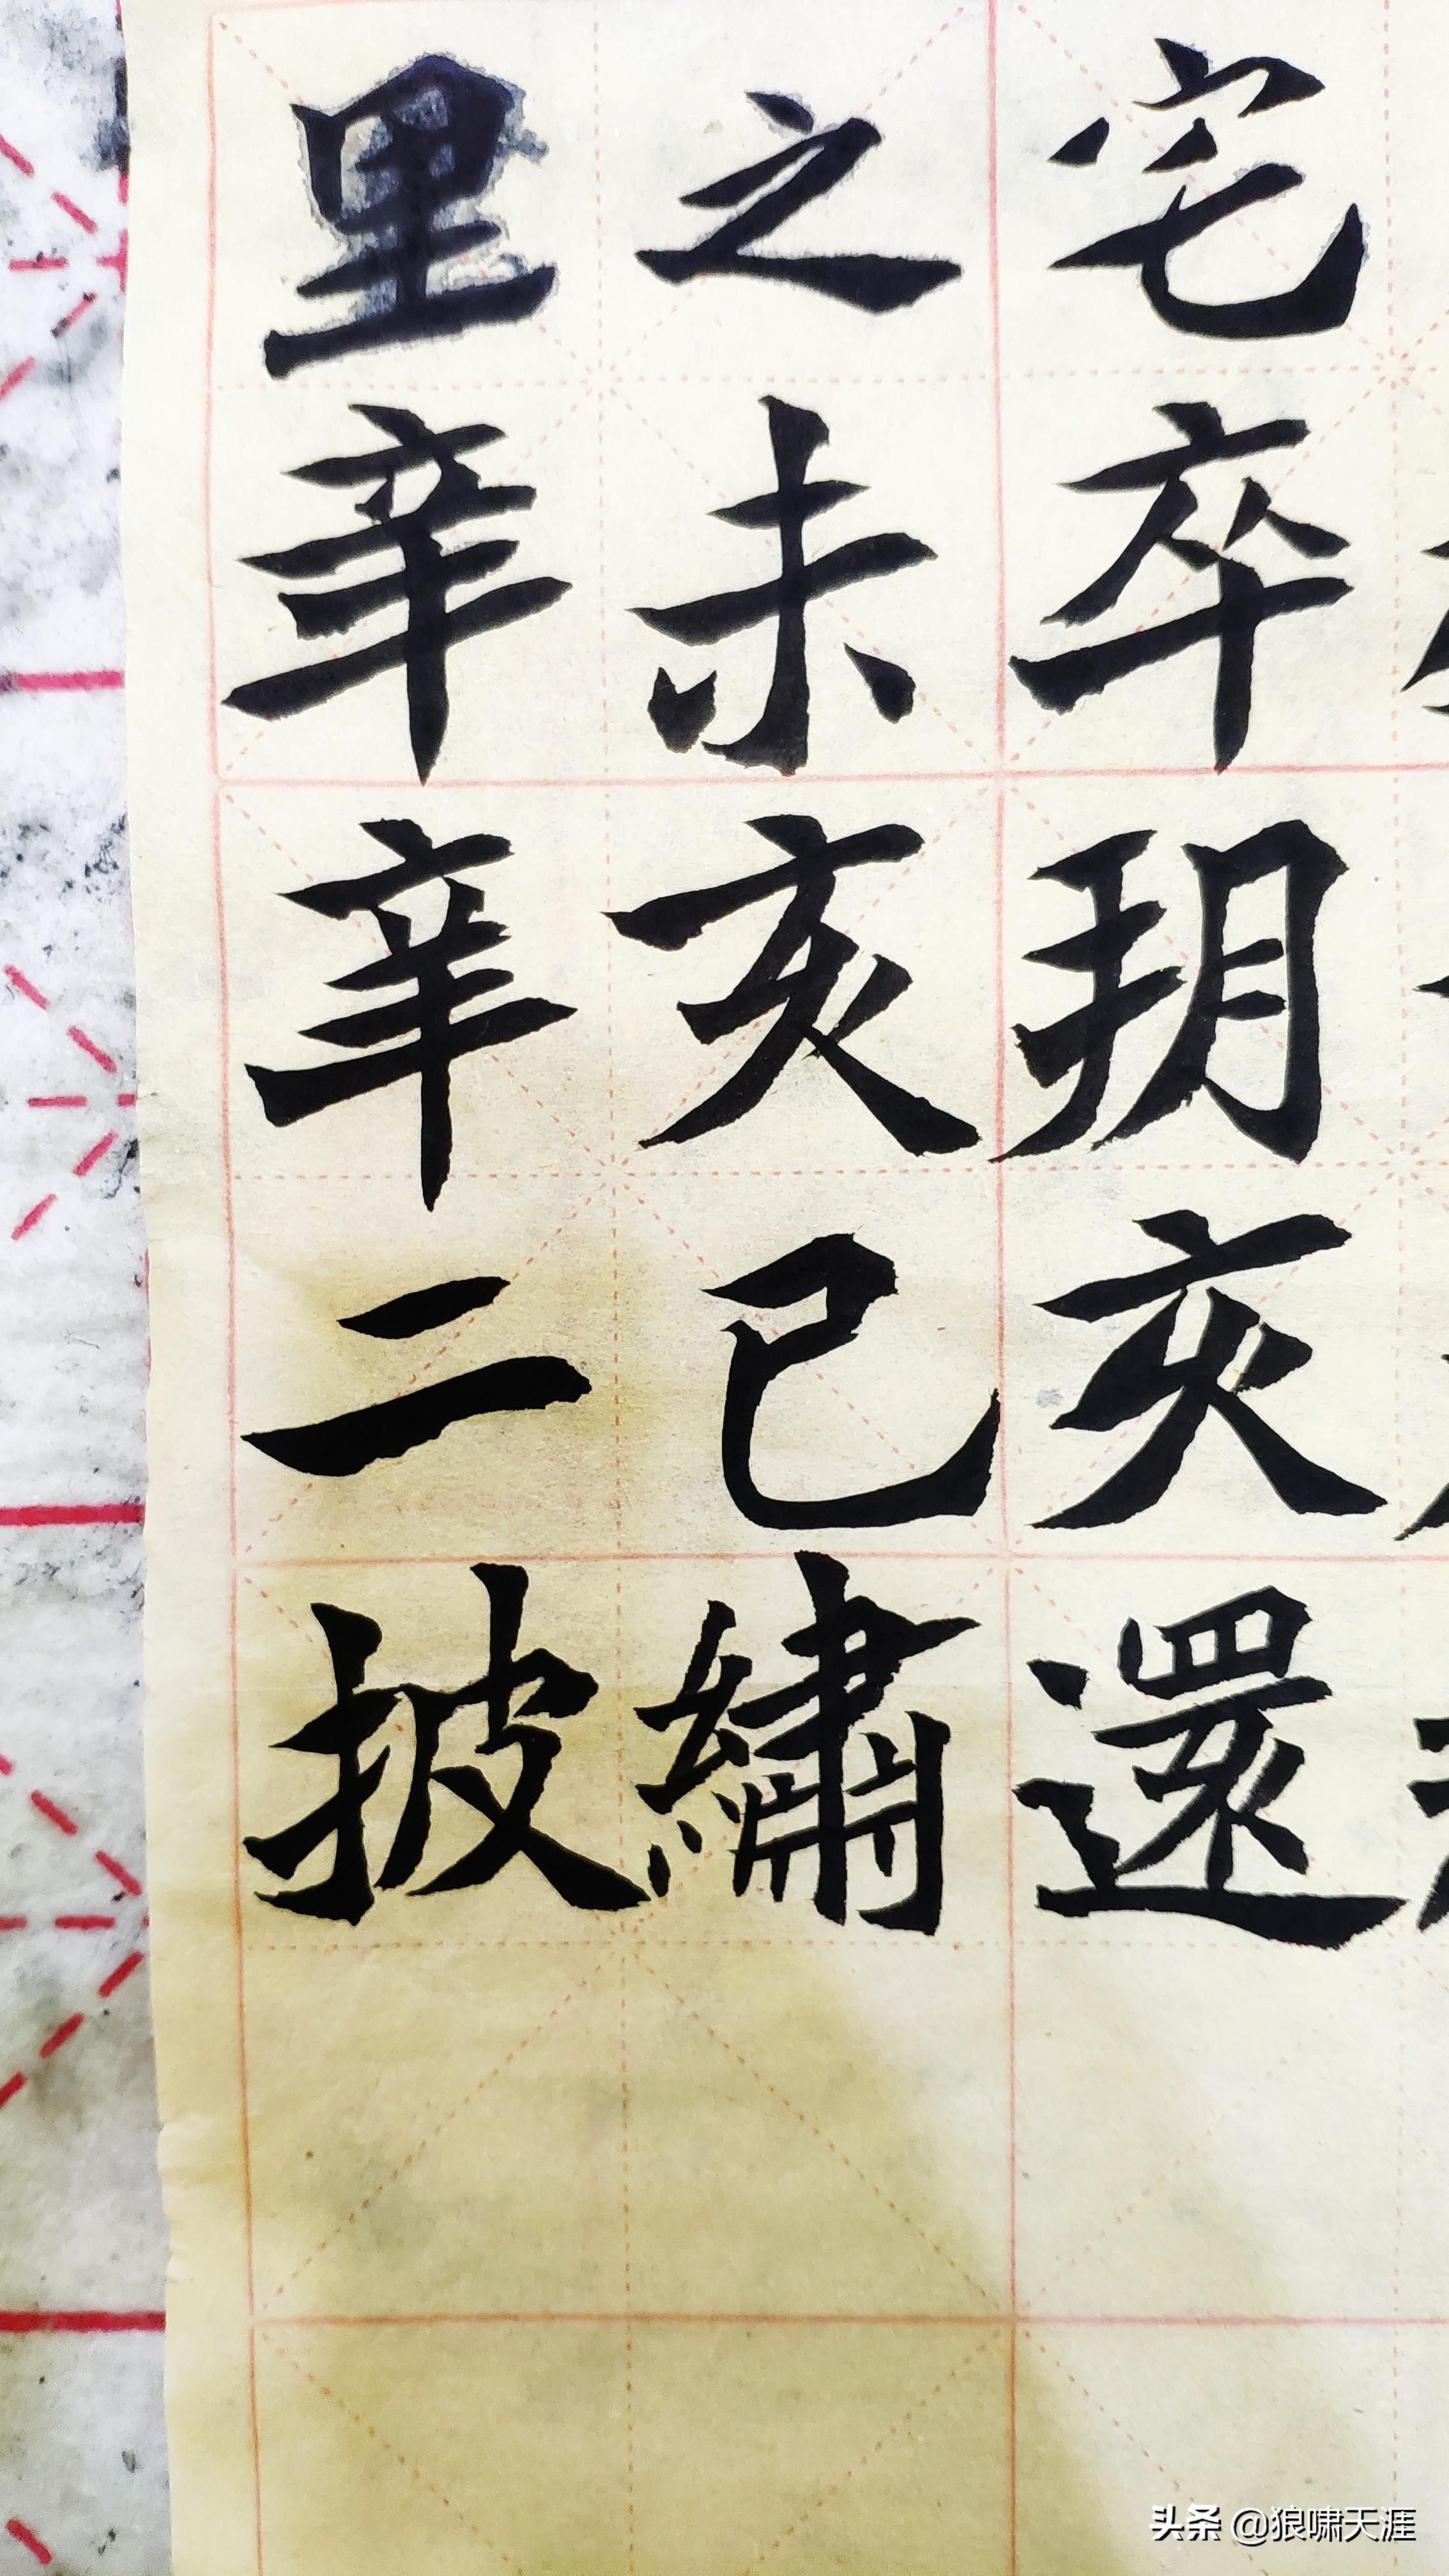 宅卒玥亥還
之未亥己繡
里辛辛二披
头条 @狼啸天涯